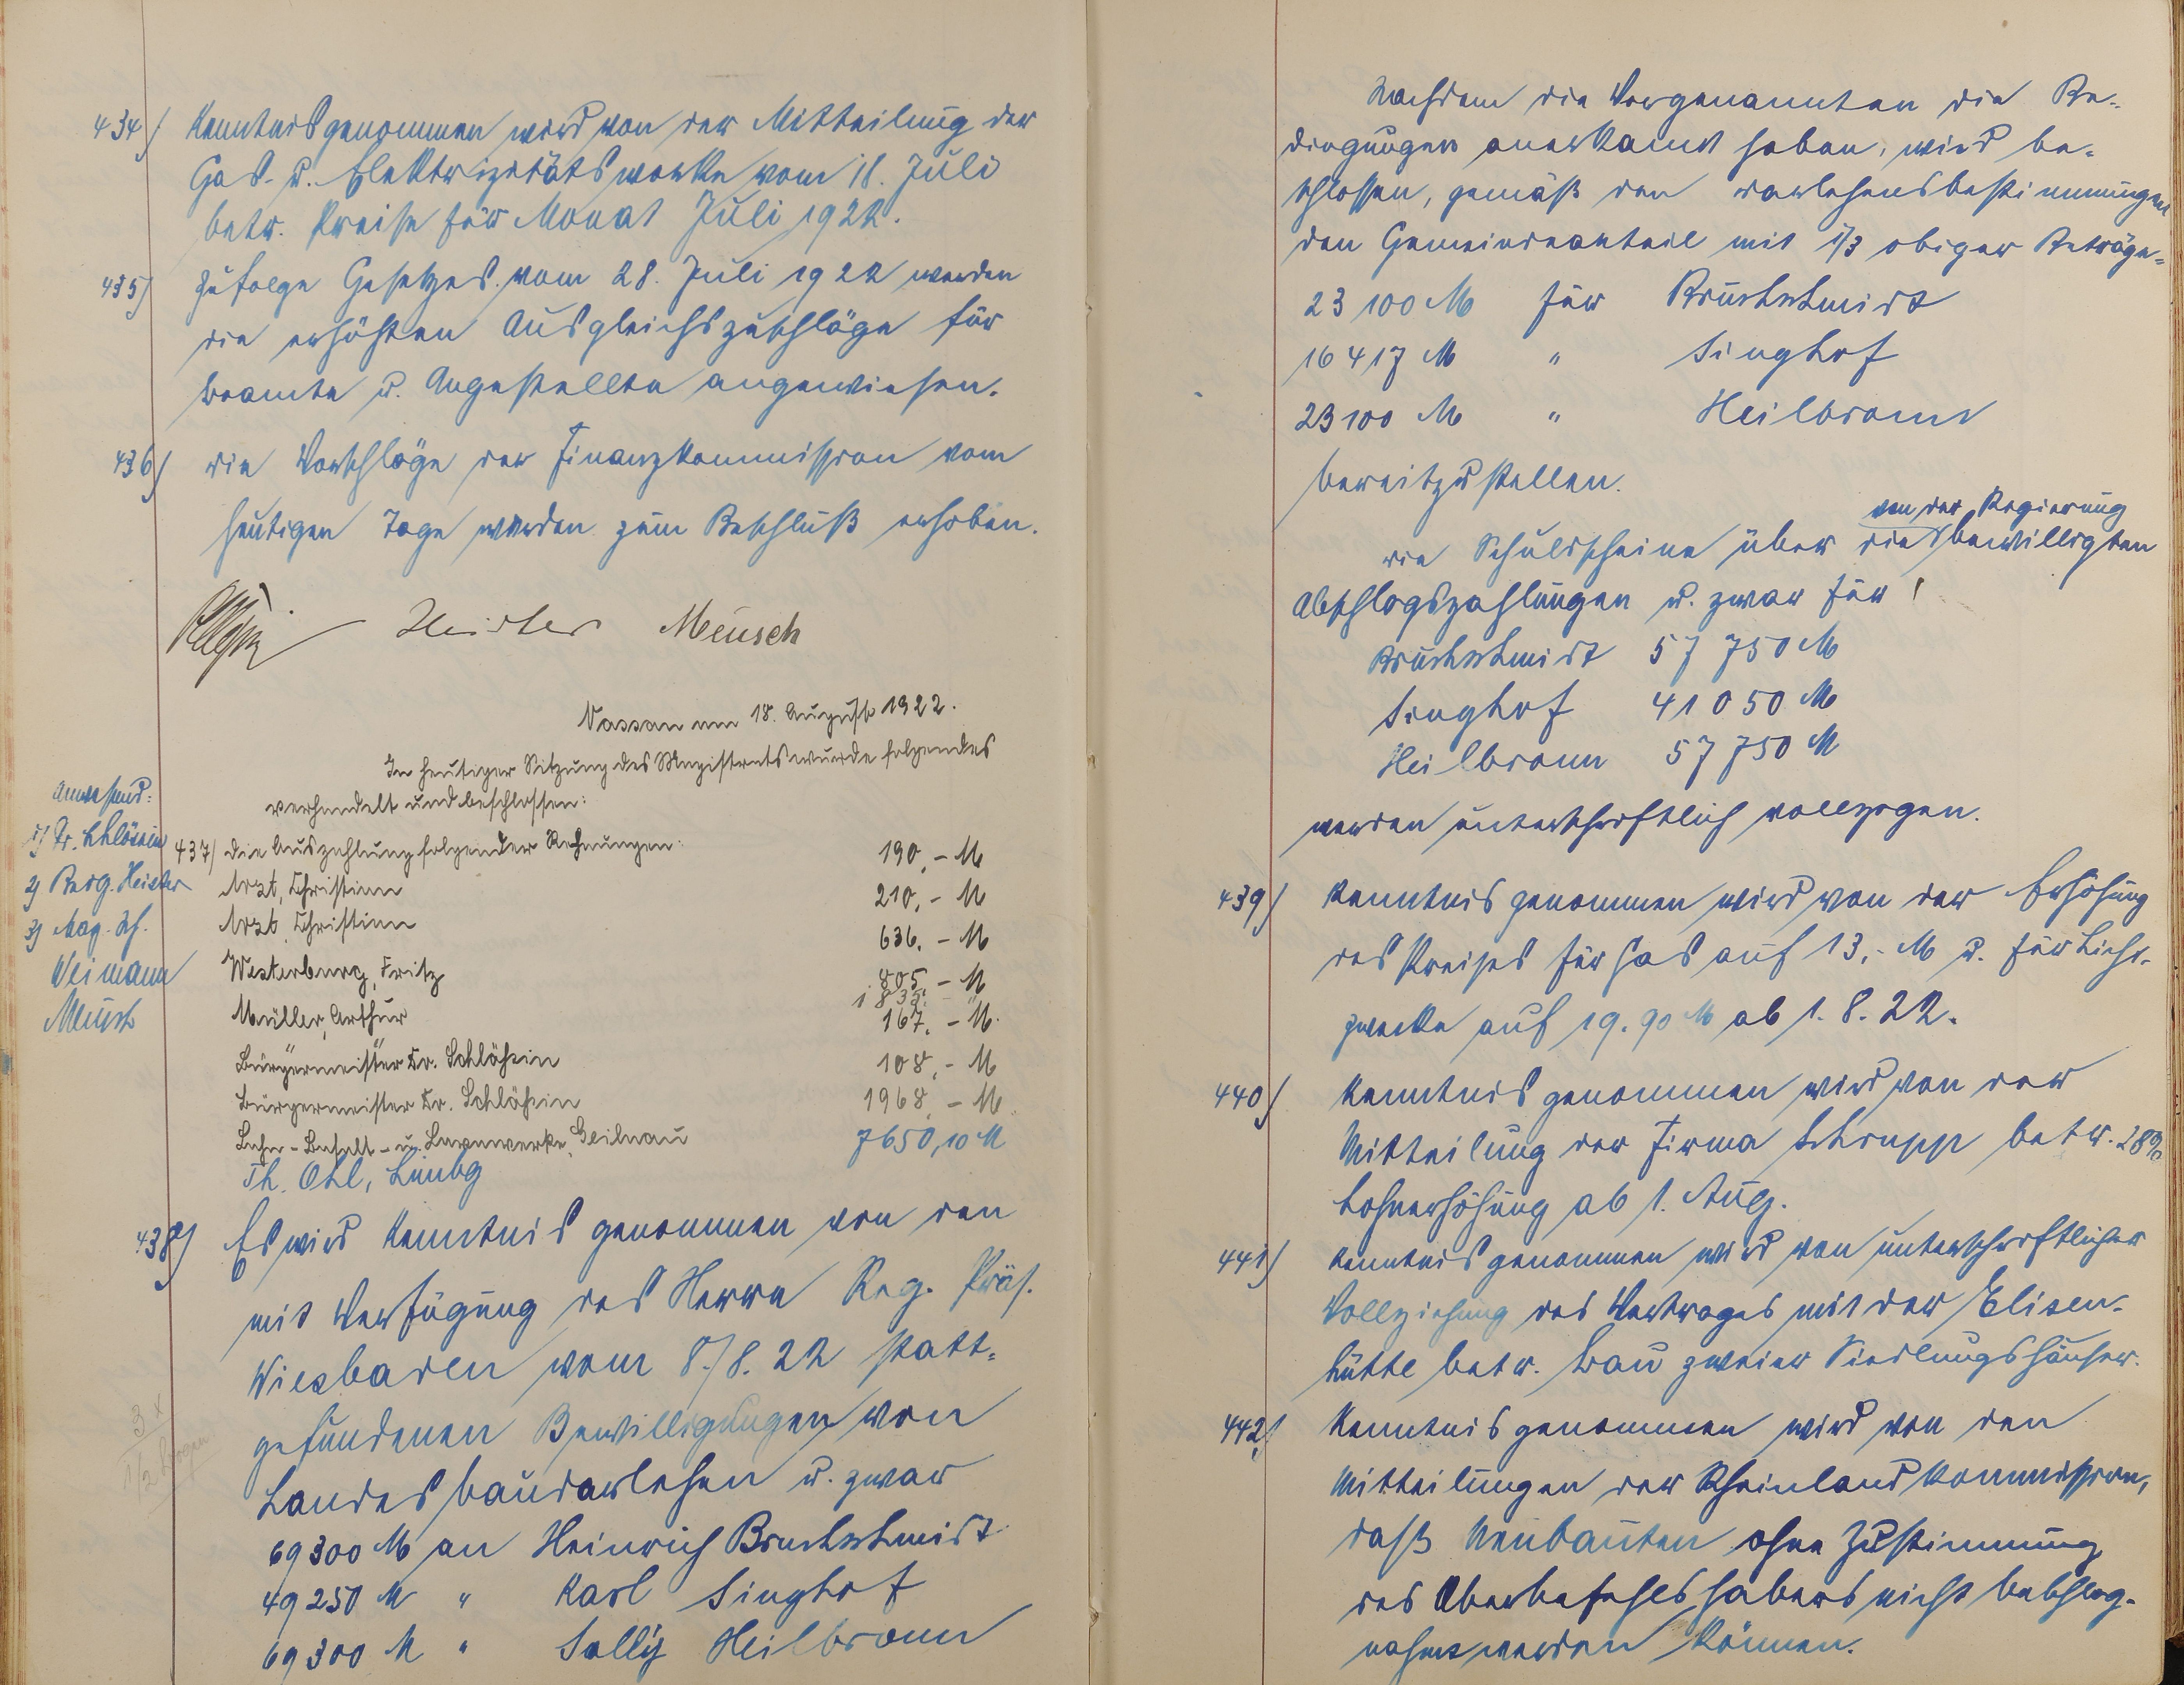 434) Kenntnis genommen wird von der Mitteilung der
Gas- u. Elektrizitätswerke vom 18. Juli
betr. Preise für Monat Juli 1922.
435) Zufolge Gesetzes vom 28. Juli 1922 werden
die erhöhten Ausgleichszuschläge für
Beamte u. Angestellte angewiesen.
436) Die Vorschläge der Finanzkommission vom
heutigen Tage werden zum Beschluß erhoben.
Heister Meusch
Nassau am 18. August 1922.
In heutiger Sitzung des Magistrats wurde folgendes
verhandelt und beschlossen:
Anwesend:
1) Br. Schlössin
2) Beig. Heister
3) Mag. Sch.
Weimann
Meusch
437) Die Auszahlung folgender Rechnungen:
Arzt, Christian 190,- M
Arzt, Christian 210,- M
Westerburg, Fritz 636,- M
Müller, Arthur 805,- M
" " 1835,- "
Bürgermeister Dr. Schlössin 167,- M
Bürgermeister Dr. Schlössin 108,- M
Lahn-Basalt- u. Lavawerke, Geilnau 1968,- M
Th. Ohl, Limbg 7650,10 M
438) Es wird Kenntnis genommen von den
mit Verfügung des Herrn Reg. Präs.
Wiesbaden vom 8./8. 22 statt=
gefundenen Bewilligungen von
Landesbaudarlehen u. zwar
69300 M an Heinrich Bruchschmidt
49250 M " Karl Singhof
69300 M " Sally Heilbronn
3 x
1/2 Bogen
Nachdem die Vorgenannten die Be-
dingungen anerkannt haben, wird be-
schlossen, gemäß den Darlehensbestimmungen
den Gemeindeanteil mit 1/3 obiger Beträge=
23100 M für Bruchschmidt
16417 M " Singhof
23100 M " Heilbronn
bereitzustellen.
von der Regierung
Die Schuldscheine über die bewilligten
Abschlagszahlungen u. zwar für!
Bruchschmidt 57750 M
Singhof 41050 M
Heilbronn 57750 M
werden unterschriftlich vollzogen.
439) Kenntnis genommen wird von der Erhöhung
des Preises für Gas auf 13,- M u. für Licht-
zwecke auf 19.90 M ab 1. 8. 22.
440) Kenntnis genommen wird von der
Mitteilung der Firma Schrupp betr. 28%
Lohnerhöhung ab 1. Aug.
441) Kenntnis genommen wird von unterschriftlicher
Vollziehung des Vertrages mit der Elisen-
hütte betr. Bau zweier Siedlungshäuser.
442) Kenntnis genommen wird von den
Mitteilungen der Rheinlandkommission,
daß Neubauten ohne Zustimmung
des Oberbefehlshabers nicht beschlag-
nahmt werden können.